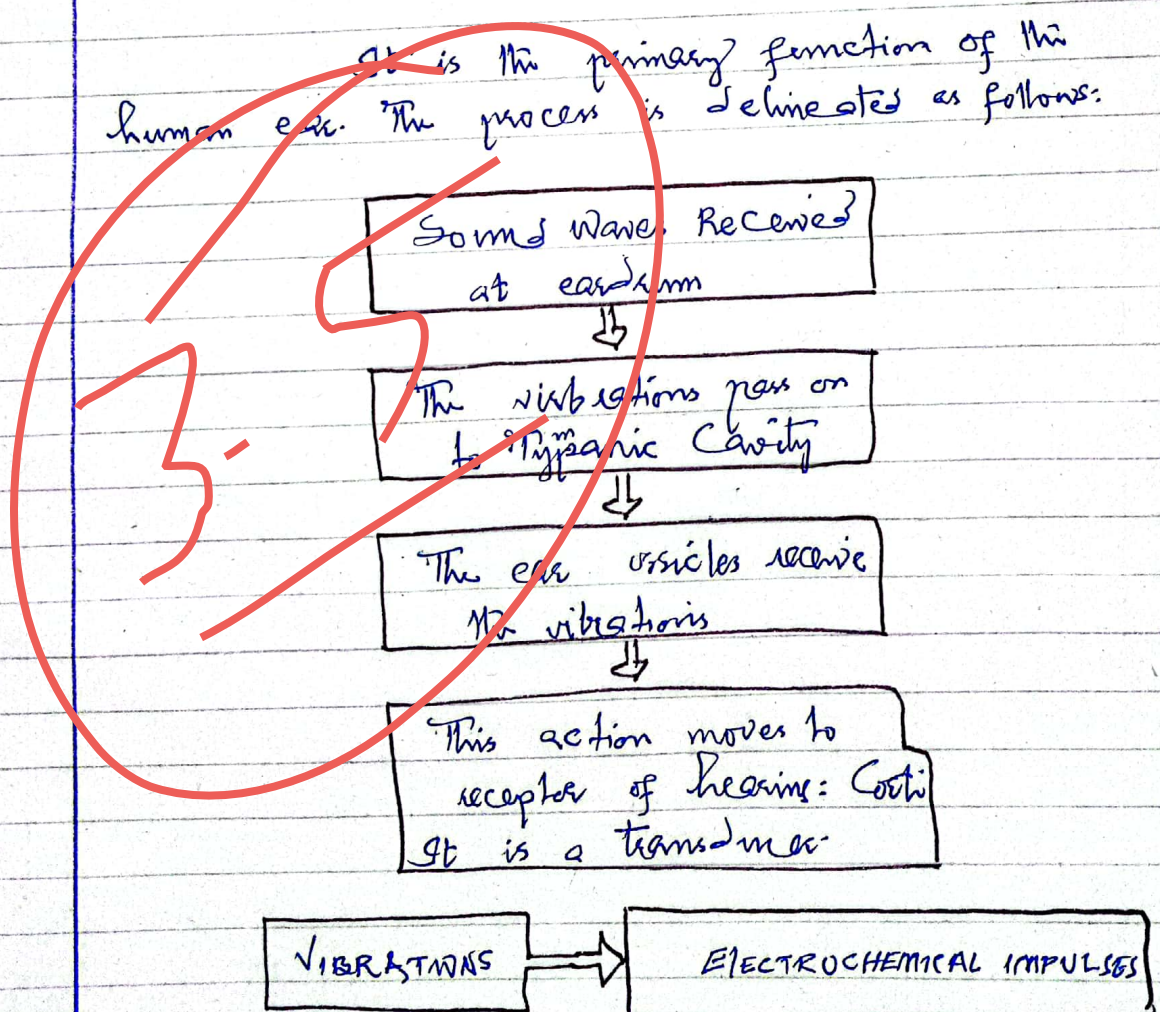 It is the primary function of the
human ear. The process is delineated as follows:
Sound Waves Received
at eardrum
The vibrations pass on
to Tympanic Cavity
The ear ossicles receive
the vibrations
This action moves to
receptor of hearing: Corti
It is a transducer.
VIBRATIONS
ELECTROCHEMICAL IMPULSES
3.5